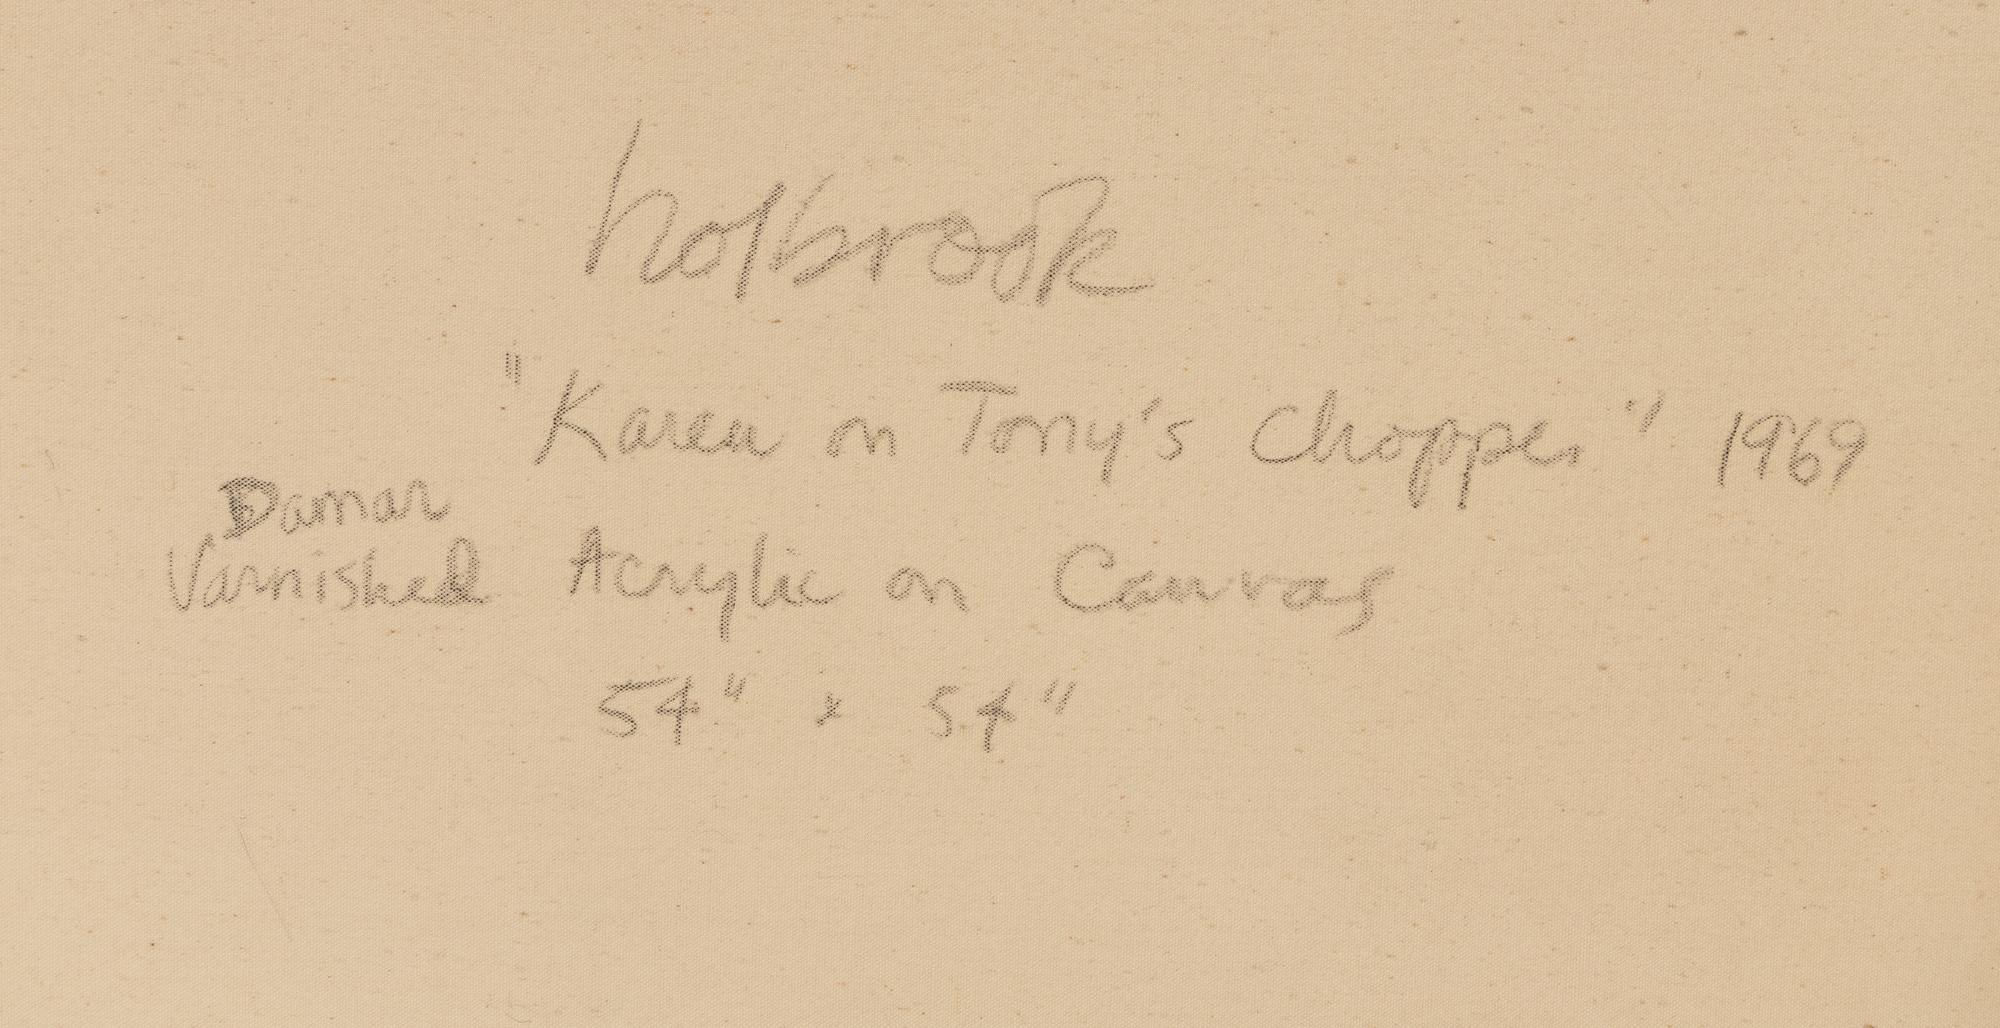 holbrook
"Karen on Tony's Chopper" 1969
Damar
Varnished Acrylic on Canvas
54" x 54"